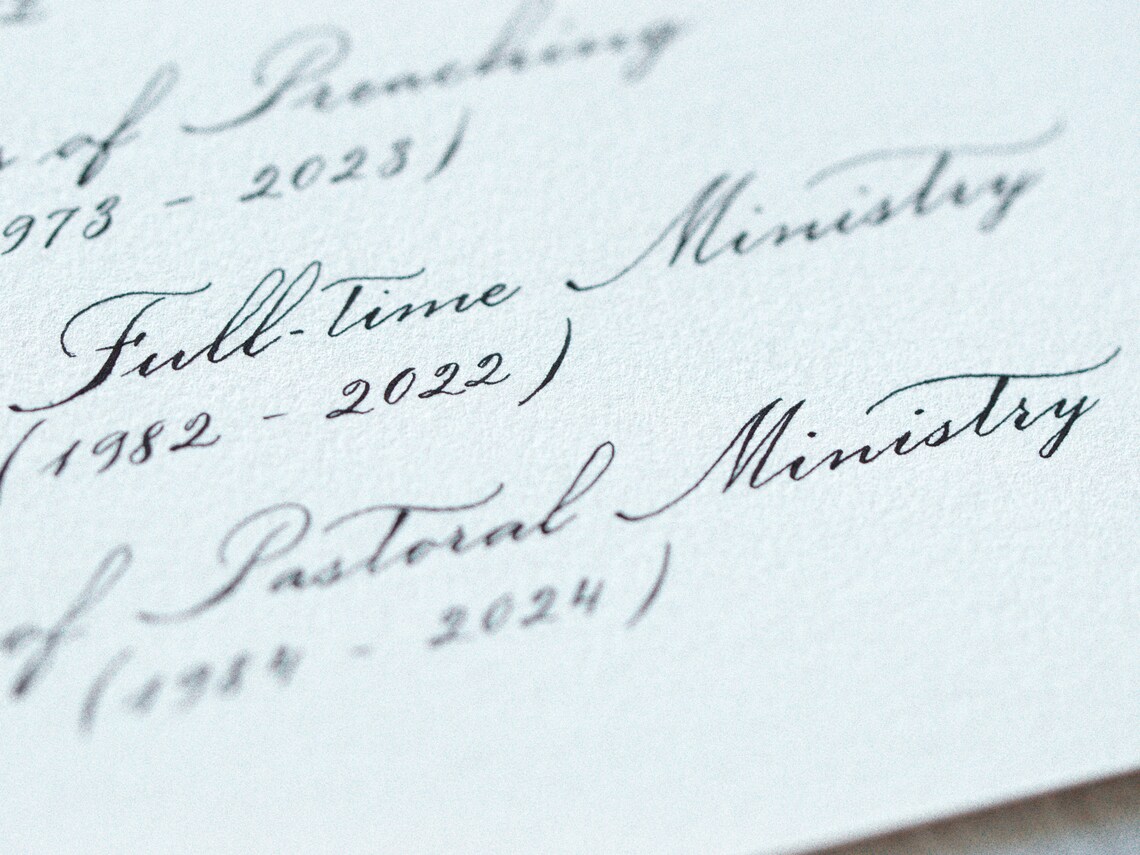 of Preaching
1973 - 2023)
Full-time Ministry
(1982 - 2022)
of Pastoral Ministry
(1984 - 2024)